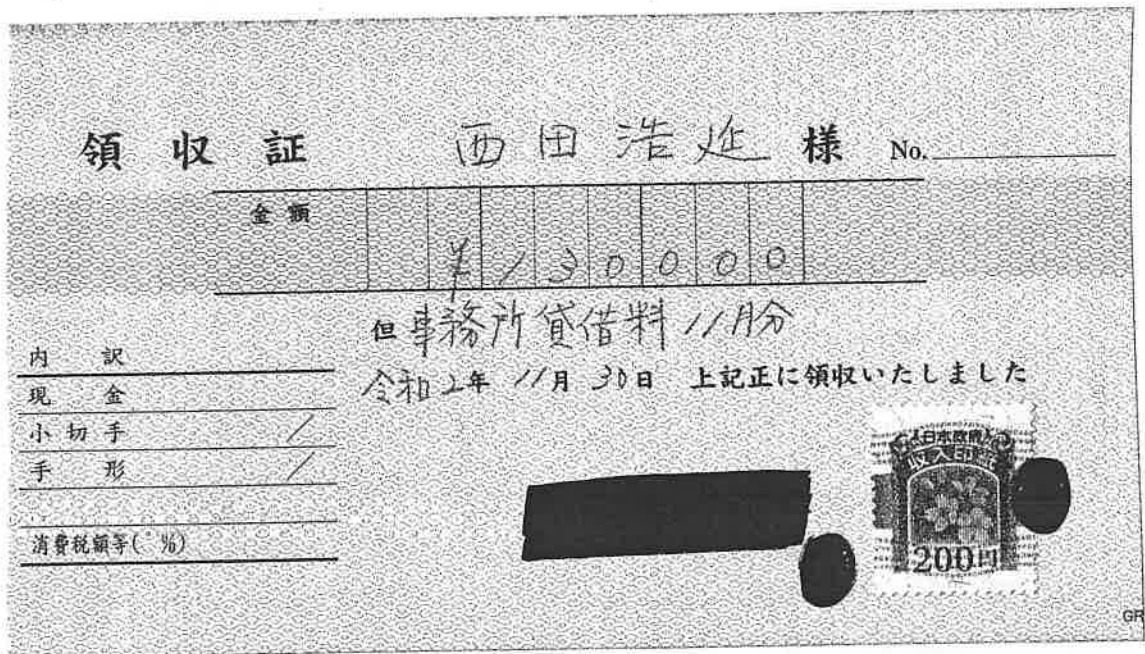 領収証 西田浩延 様 No.
金額 ¥130000
但 事務所賃借料11月分
令和2年 11月 30日 上記正に領収いたしました
内訳
現金
小切手 /
手形 /
消費税額等( %)
日本政府
収入印紙
200円
GR